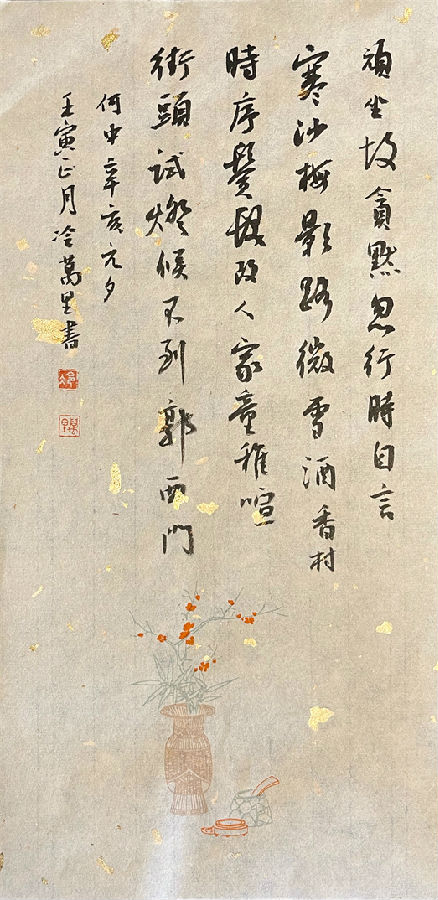 頑坐故貪默忽行時自言
寒沙梅影路微雪酒香村
時序鬢髮改人家童稚喧
街頭試燈候不到郭西門
何中辛亥元夕
壬寅正月冷萬里書